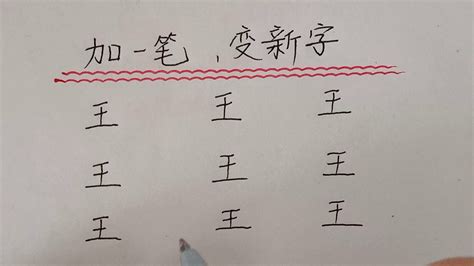 加一笔，变新字
王 王 王
王 王 王
王 王 王